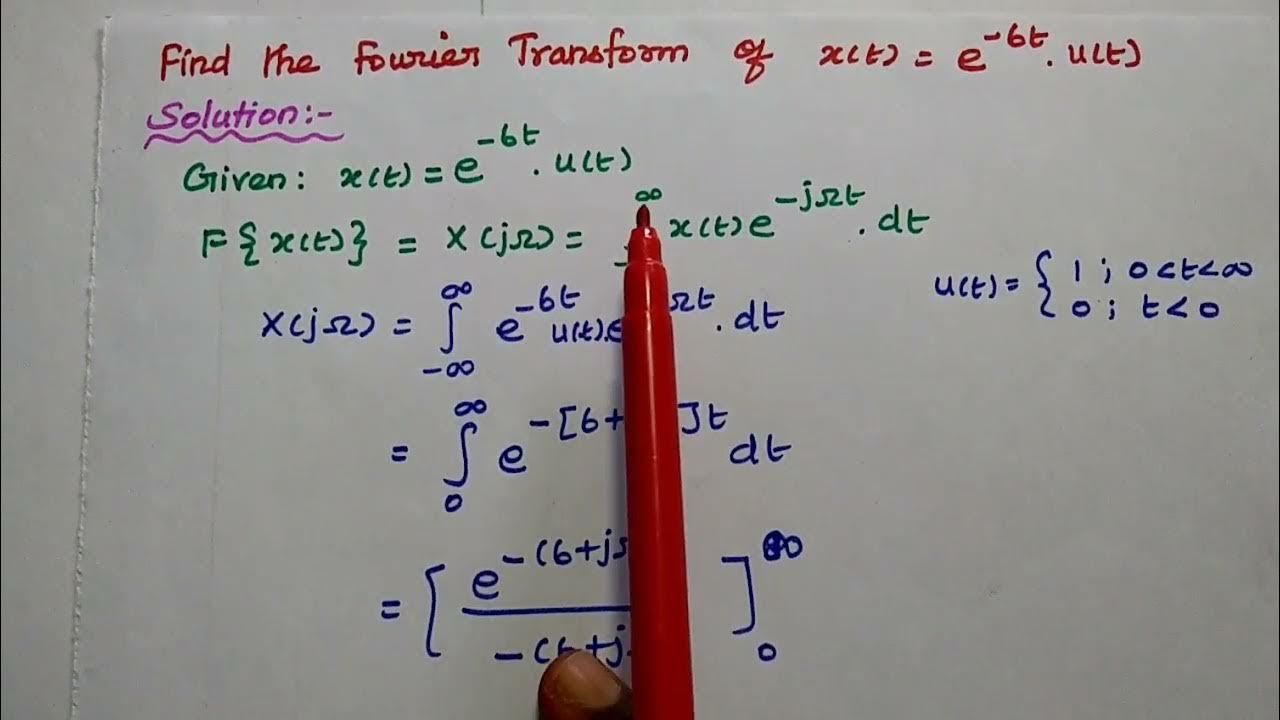 Find the Fourier Transform of x(t) = e^{-6t}. u(t)
Solution:-
Given: x(t) = e^{-6t}. u(t)
F{x(t)} = X(jΩ) = ∫^{∞} x(t) e^{-jΩt}. dt
u(t) = { 1 ; 0<t<∞
0 ; t<0
X(jΩ) = ∫_{-∞}^{∞} e^{-6t} u(t).e^{Ωt}. dt
= ∫_{0}^{∞} e^{-[6+ ]t} dt
= [ e^{-(6+j} / -(6+j ]_{0}^{∞}